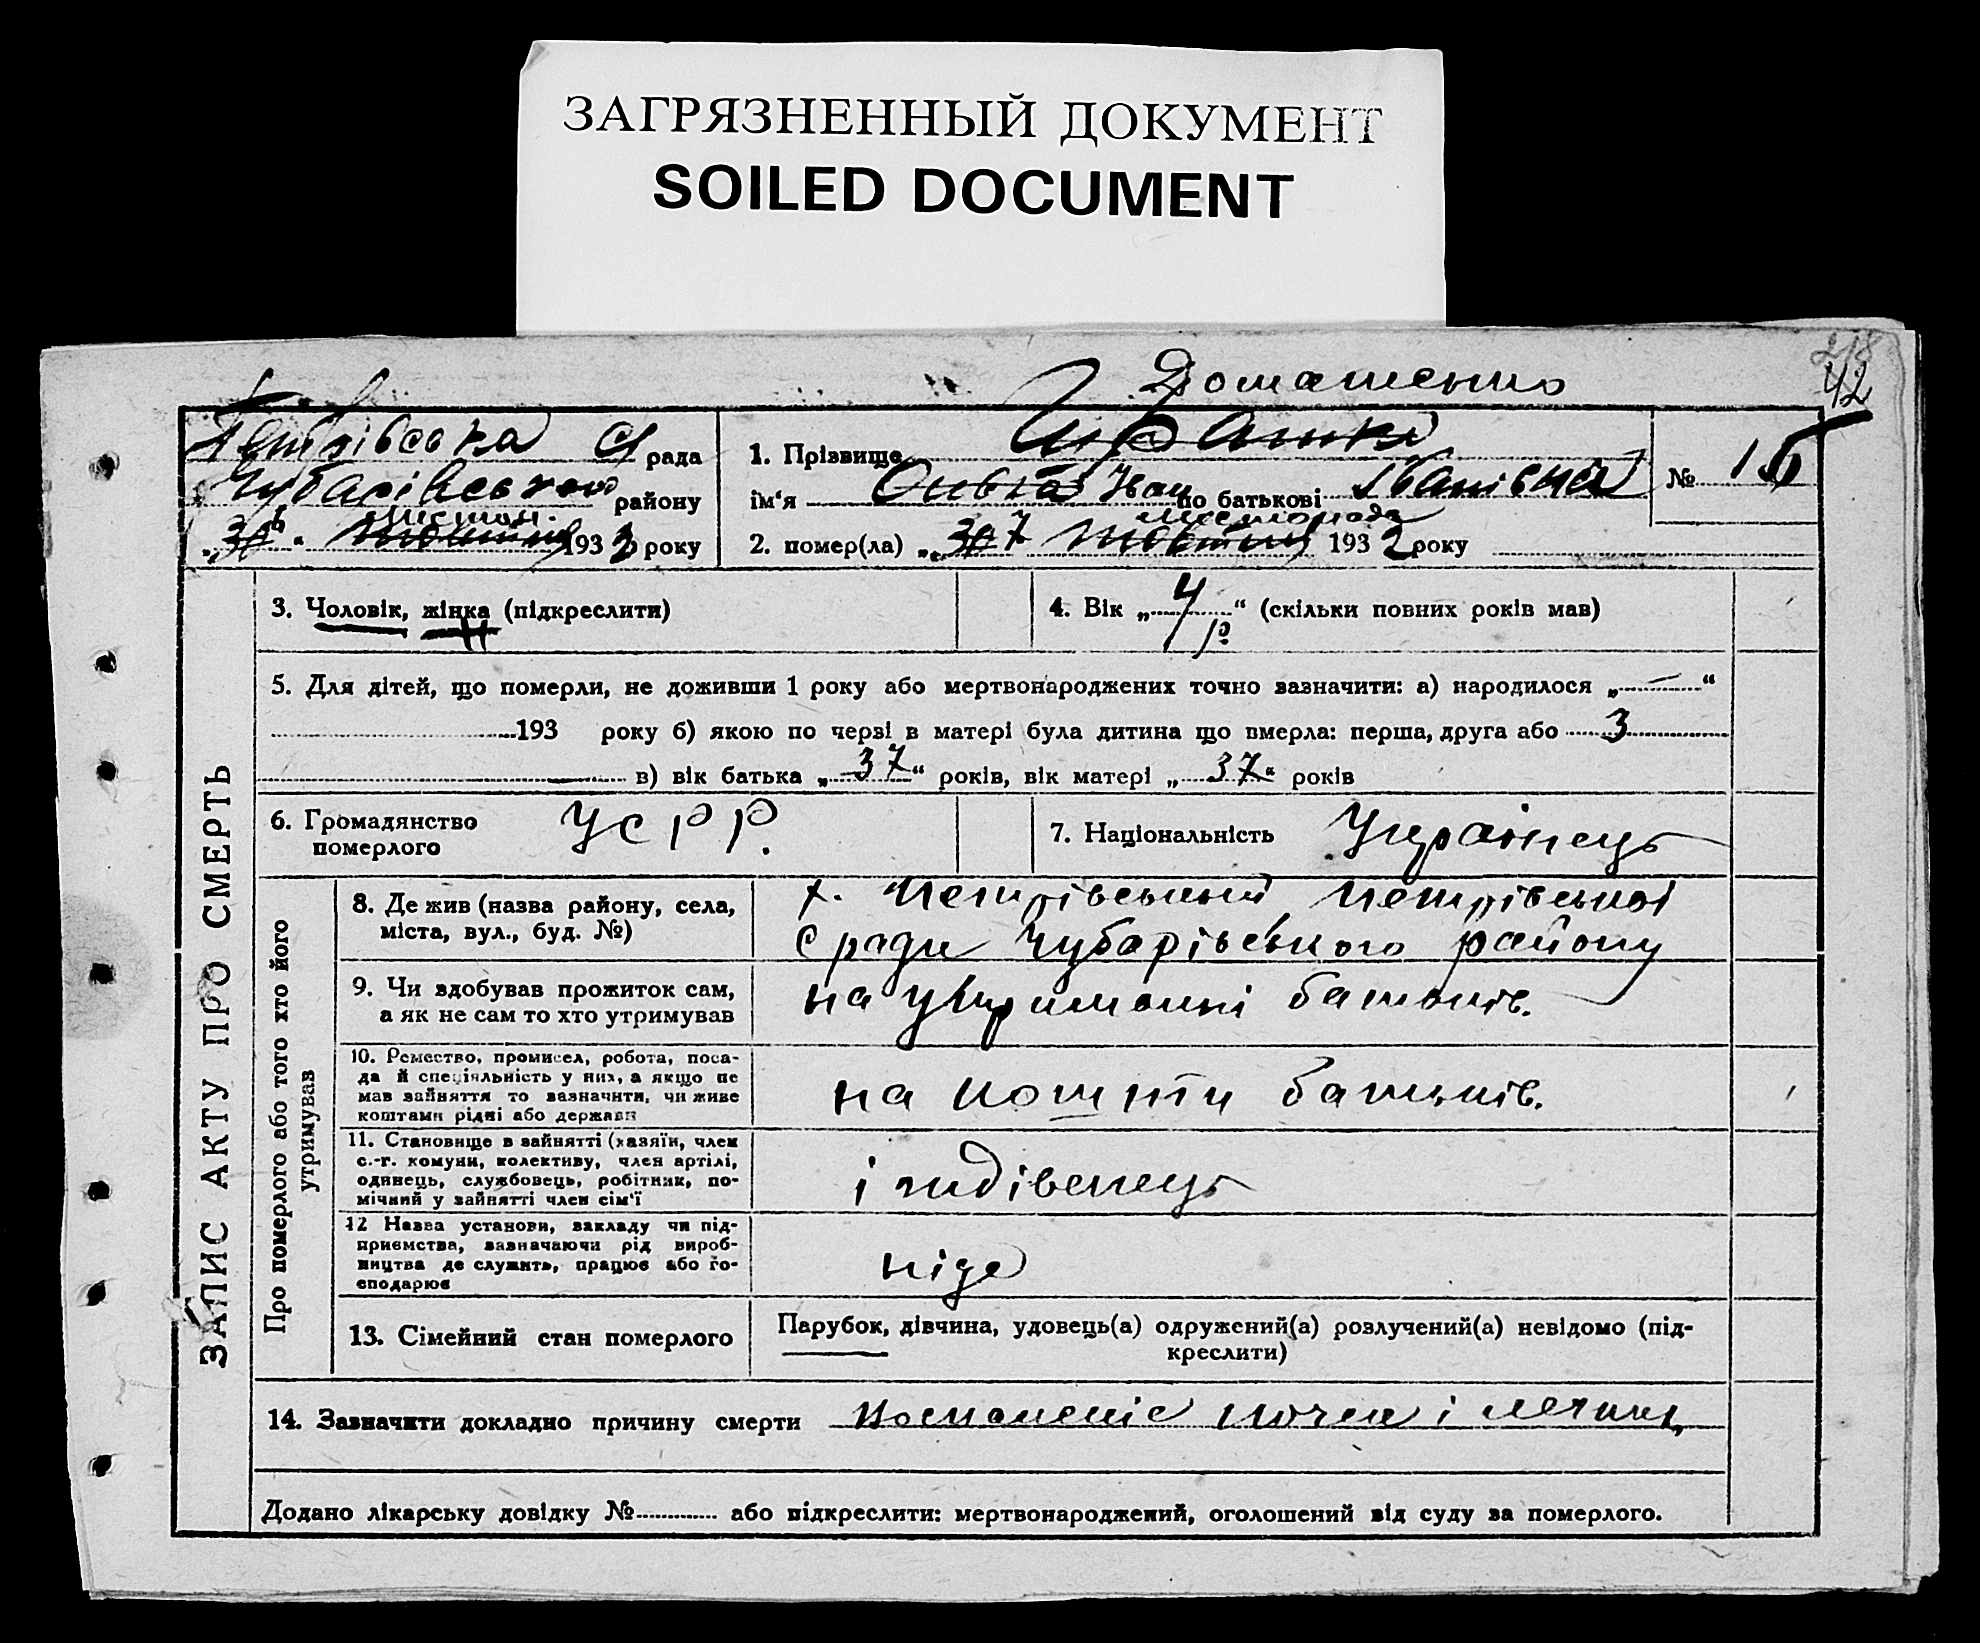 ЗАГРЯЗНЕННЫЙ ДОКУМЕНТ
SOILED DOCUMENT
218
42
Доташенко
Петрівська с/рада
Чубарівського району
193 2 року
1. Прізвище
ім'я Іван по батькові
2. помер(ла) „ 7 листопада 193 2 року
№ 16
ЗАПИС АКТУ ПРО СМЕРТЬ
3. Чоловік, жінка (підкреслити)
4. Вік „ 4 р “ (скільки повних років мав)
5. Для дітей, що померли, не доживши 1 року або мертвонароджених точно зазначити: а) народилося „ — “
193 року б) якою по черзі в матері була дитина що вмерла: перша, друга або 3
в) вік батька „ 37 “ років, вік матері „ 37 “ років
6. Громадянство померлого УСРР.
7. Національність Українець
Про померлого або того хто його утримував
8. Де жив (назва району, села, міста, вул., буд. №)
х. Петрівський Петрівської
с ради Чубарівського району
9. Чи здобував прожиток сам, а як не сам то хто утримував
на утриманні батьків.
10. Ремество, промисел, робота, посада й спеціяльність у них, а якщо не мав зайняття то зазначити, чи живе коштами рідні або держави
на кошти батьків.
11. Становище в зайнятті (хазяїн, член с.-г. комуни, колективу, член артілі, одинець, службовець, робітник, помічний у зайнятті член сім'ї
індівенець
12 Назва установи, закладу чи підприємства, зазначаючи рід виробництва де служить, працює або господарює
ніде
13. Сімейний стан померлого
Парубок, дівчина, удовець(а) одружений(а) розлучений(а) невідомо (підкреслити)
14. Зазначити докладно причину смерти
Додано лікарську довідку № або підкреслити: мертвонароджений, оголошений від суду за померлого.